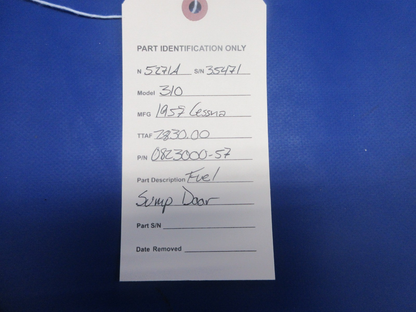 PART IDENTIFICATION ONLY
N 5271A S/N 35471
Model 310
MFG 1957 Cessna
TTAF 2830.00
P/N 0823000-57
Part Description Fuel
Sump Door
Part S/N
Date Removed